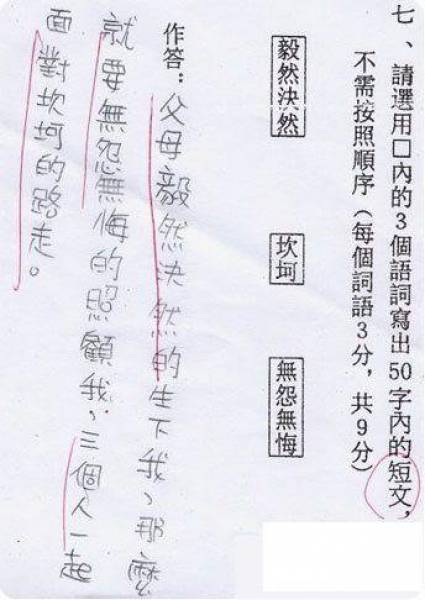 七、請選用□內的3個語詞寫出50字內的短文,
不需按照順序（每個詞語3分，共9分）
毅然決然 坎坷 無怨無悔
作答：父母毅然決然的生下我、那麼
就要無怨無悔的照顧我、三個人一起
面對坎坷的路走。